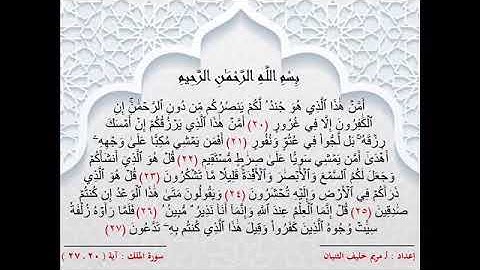 بِسْمِ اللَّهِ الرَّحْمَٰنِ الرَّحِيمِ
أَمَّنْ هَٰذَا ٱلَّذِي هُوَ جُندٌ لَّكُمْ يَنصُرُكُم مِّن دُونِ ٱلرَّحْمَٰنِ إِنِ
ٱلْكَٰفِرُونَ إِلَّا فِي غُرُورٍ (٢٠) أَمَّنْ هَٰذَا ٱلَّذِي يَرْزُقُكُمْ إِنْ أَمْسَكَ
رِزْقَهُۥ بَل لَّجُّوا۟ فِي عُتُوٍّ وَنُفُورٍ (٢١) أَفَمَن يَمْشِي مُكِبًّا عَلَىٰ وَجْهِهِۦٓ
أَهْدَىٰٓ أَمَّن يَمْشِي سَوِيًّا عَلَىٰ صِرَٰطٍ مُّسْتَقِيمٍ (٢٢) قُلْ هُوَ ٱلَّذِيٓ أَنشَأَكُمْ
وَجَعَلَ لَكُمُ ٱلسَّمْعَ وَٱلْأَبْصَٰرَ وَٱلْأَفْـِٔدَةَ قَلِيلًا مَّا تَشْكُرُونَ (٢٣) قُلْ هُوَ ٱلَّذِي
ذَرَأَكُمْ فِي ٱلْأَرْضِ وَإِلَيْهِ تُحْشَرُونَ (٢٤) وَيَقُولُونَ مَتَىٰ هَٰذَا ٱلْوَعْدُ إِن كُنتُمْ
صَٰدِقِينَ (٢٥) قُلْ إِنَّمَا ٱلْعِلْمُ عِندَ ٱللَّهِ وَإِنَّمَآ أَنَا۠ نَذِيرٌ مُّبِينٌ (٢٦) فَلَمَّا رَأَوْهُ زُلْفَةً
سِيٓـَٔتْ وُجُوهُ ٱلَّذِينَ كَفَرُوا۟ وَقِيلَ هَٰذَا ٱلَّذِي كُنتُم بِهِۦ تَدَّعُونَ (٢٧)
إعداد : أ. مريم خليف الثنيان
سورة الملك : آية ( ٢٠ - ٢٧ )